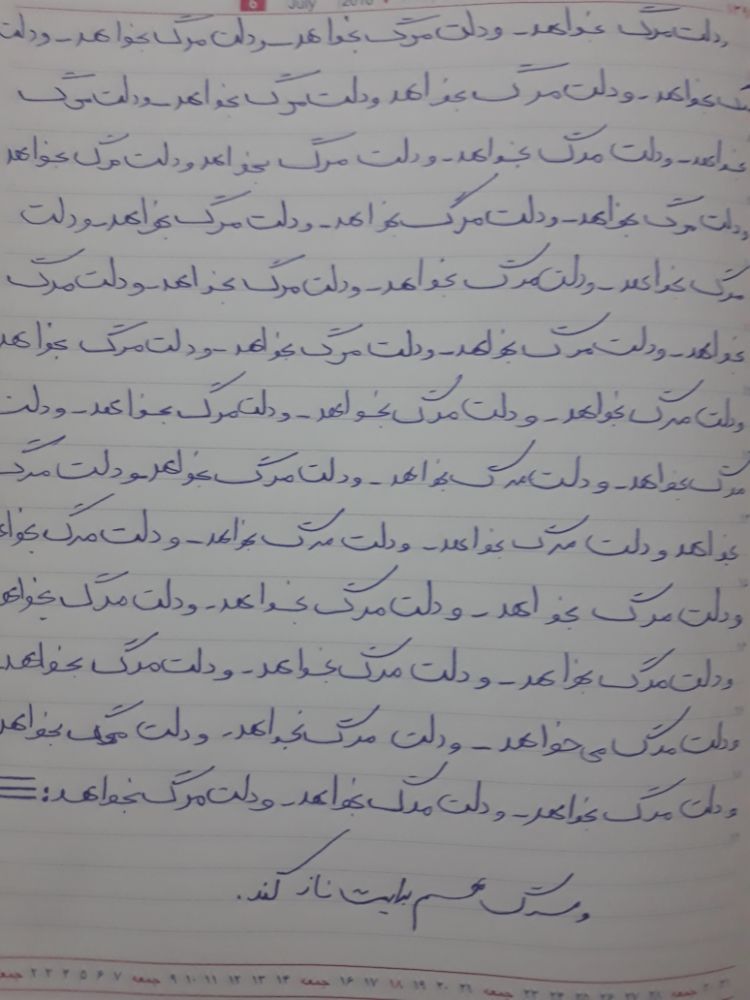 6 July 2018
ودلت مرگ بخواهد - ودلت مرگ بخواهد - ودلت مرگ بخواهد - ودلت
مرگ بخواهد - ودلت مرگ بخواهد ودلت مرگ بخواهد - ودلت مرگ
بخواهد - ودلت مرگ بخواهد - ودلت مرگ بخواهد ودلت مرگ بخواهد
ودلت مرگ بخواهد - ودلت مرگ بخواهد - ودلت مرگ بخواهد - ودلت
مرگ بخواهد - ودلت مرگ بخواهد - ودلت مرگ بخواهد - ودلت مرگ
بخواهد - ودلت مرگ بخواهد - ودلت مرگ بخواهد - ودلت مرگ بخواهد
ودلت مرگ بخواهد - ودلت مرگ بخواهد - ودلت مرگ بخواهد - ودلت
مرگ بخواهد - ودلت مرگ بخواهد - ودلت مرگ بخواهد - ودلت مرگ
بخواهد ودلت مرگ بخواهد - ودلت مرگ بخواهد - ودلت مرگ بخواهد
ودلت مرگ بخواهد - ودلت مرگ بخواهد - ودلت مرگ بخواهد
ودلت مرگ بخواهد - ودلت مرگ بخواهد - ودلت مرگ بخواهد
ودلت مرگ می‌خواهد - ودلت مرگ بخواهد - ودلت مرگ بخواهد
ودلت مرگ بخواهد - ودلت مرگ بخواهد - ودلت مرگ بخواهد:
ومرگ هم برایت ناز کند.